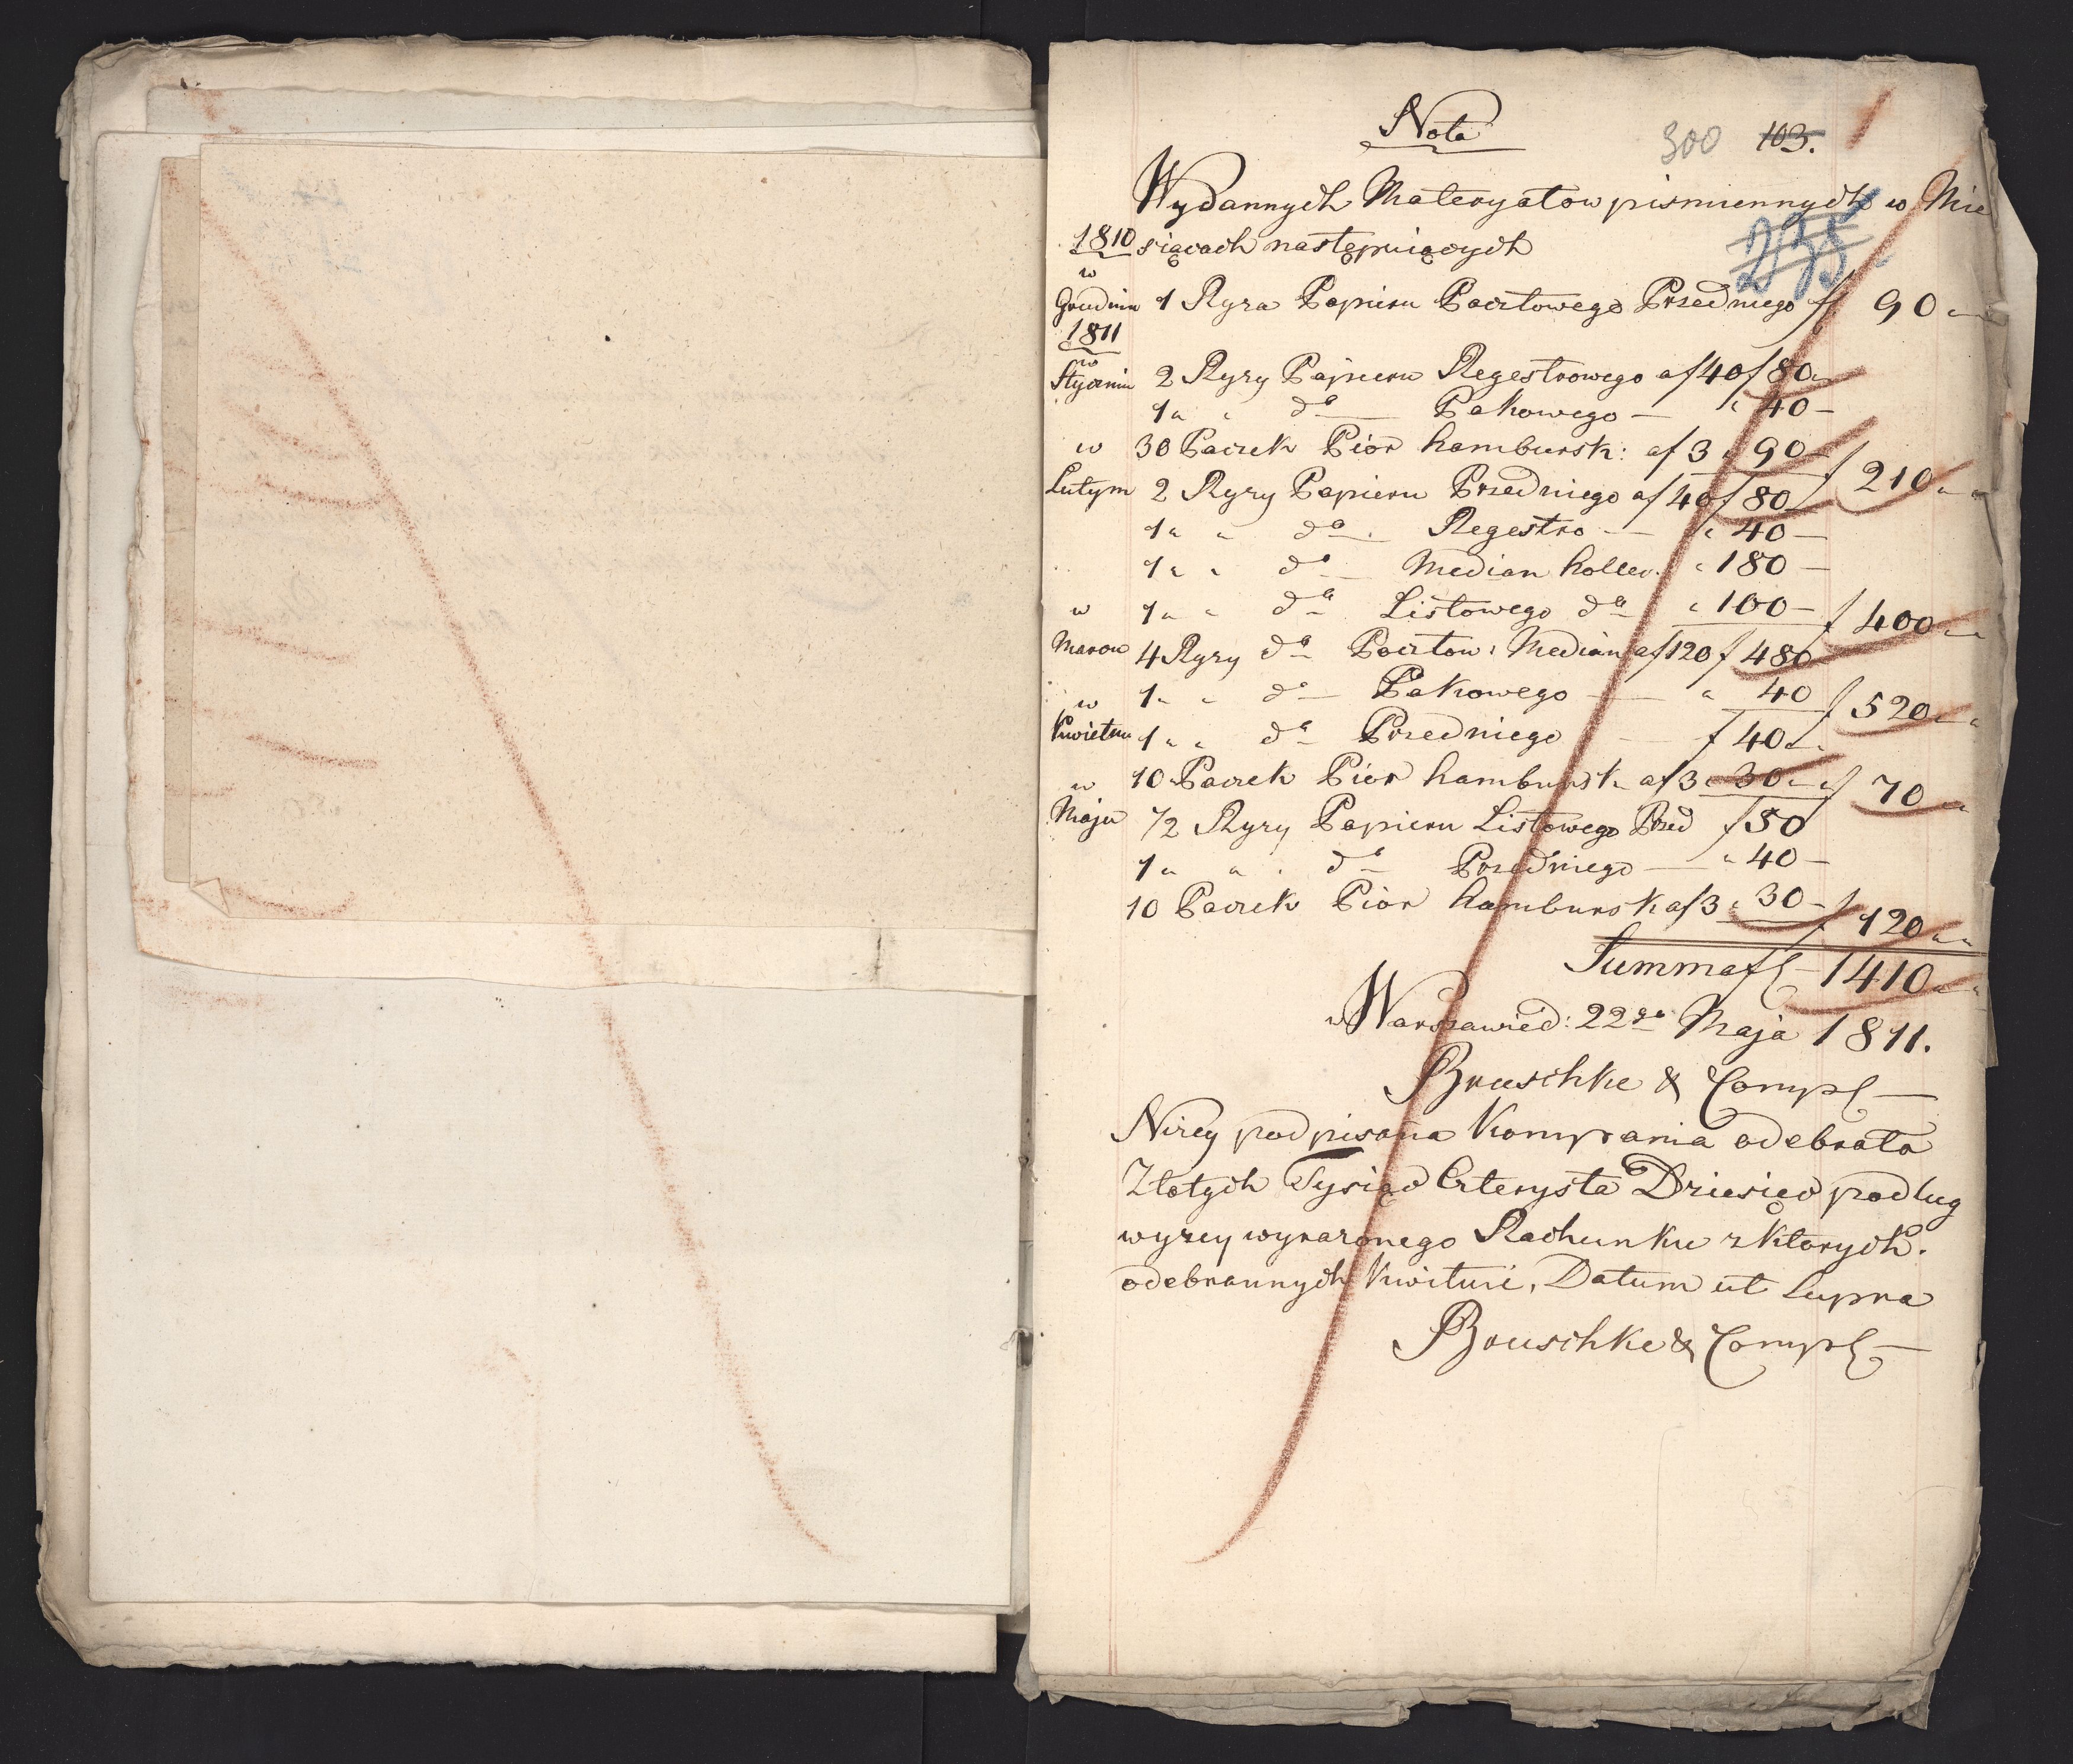 Nota
300 103.
Wydannych Materyałow pismiennych w Mie
235
1810 siącach następuiących
w Grudniu 1 Ryza Papieru Pocztowego Przedniego f 90 "
1811
w Styczniu 2 Ryzy Papieru Regestrowego af 40 f 80 "
1 " " do Pakowego — " 40 —
w 30 Paczek Piór hambursk: af 3 " 90 — f 210 " "
Lutym 2 Ryzy Papieru Przedniego af 40 f 80
1 " " do Regestro — " 40 —
1 " " do Median holle. " 180 —
w 1 " " do Listowego do " 100 — f 400 " "
Marcu 4 Ryzy do Pocztow: Median af 120 f 480
1 " " do Pakowego — " 40 f 520 " "
w Kwietniu 1 " " do Przedniego — f 40 " "
10 Paczek Piór hambursk af 3 " 30 " " f 70 " "
w Maju ½ Ryzy Papieru Listowego Przed f 50
1 " " do Przedniego — " 40 —
10 Paczek Piór hambursk af 3 " 30 — f 120 " "
Summa f — 1410 " "
w Warszawie d: 22go Maja 1811.
Bruschke & Comp —
Nizey podpisana Kompania odebrała
Złotych Tysiąc Czterysta Dziesięc podług
wyzey wyrazonego Rachunku z ktorych.
odebrannych kwituie, Datum ut Supra
Bruschke & Comp —